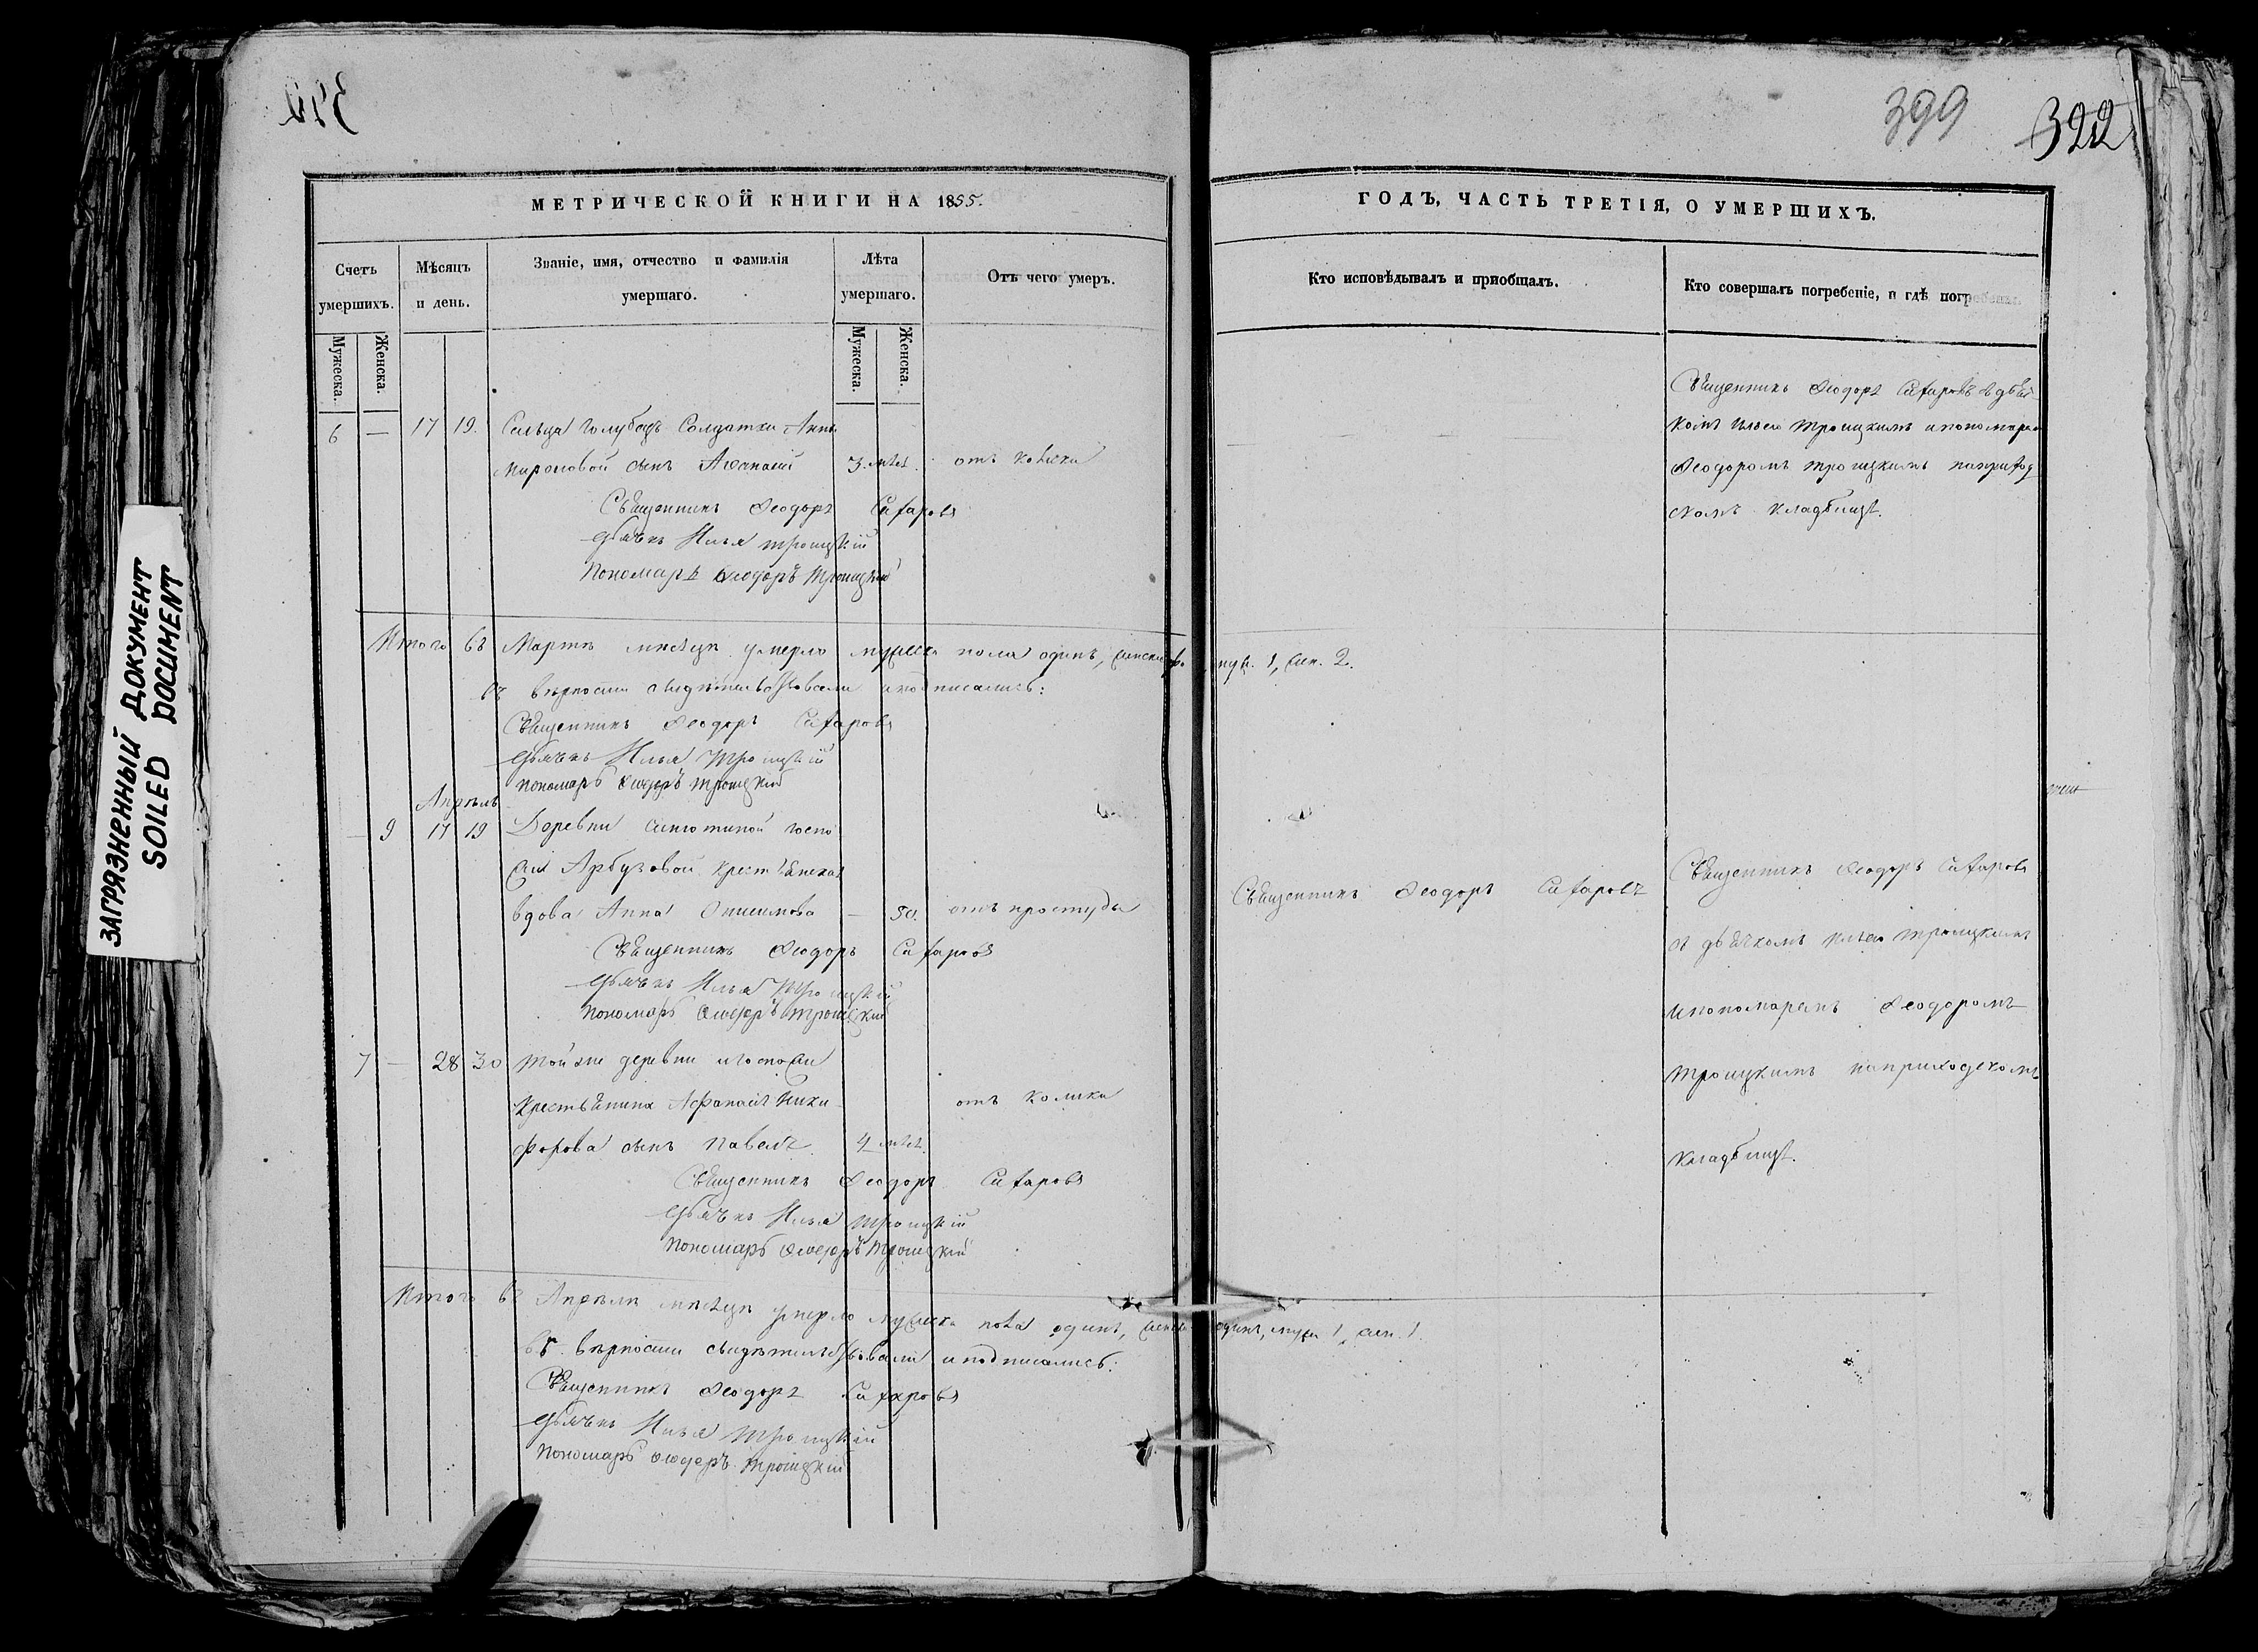 399
322
ЗАГРЯЗНЕННЫЙ ДОКУМЕНТ
SOILED DOCUMENT
МЕТРИЧЕСКОЙ КНИГИ НА 1855.
Счетъ умершихъ.
Мужеска.
Женска.
Мѣсяцъ и день.
Званіе, имя, отчество и фамилія умершаго.
Лѣта умершаго.
Мужеска.
Женска.
Отъ чего умеръ.
6 — 17 19. Сельца Солдатки Анны
Мироновой сынъ Аѳанасій 3. лѣтъ. отъ
Священникъ Ѳеодоръ Сахаровъ
Дьячекъ Илья Троицкій
Пономарь Ѳеодоръ Троицкій
Итого въ Мартѣ мѣсяцѣ умерло мужеска пола одинъ, муж. 1, жен. 2.
въ вѣрности свидѣтельствовали и подписались:
Священникъ Ѳеодоръ Сахаровъ
Дьячекъ Илья Троицкій
Пономарь Ѳеодоръ Троицкій
Апрѣль
— 9 17 19 Деревни госпо
жи Арбузовой крестьянская
вдова Анна Онисимова — 50. отъ простуды
Священникъ Ѳеодоръ Сахаровъ
Дьячекъ Илья Троицкій
Пономарь Ѳеодоръ Троицкій
7 — 28 30 Той же деревни и госпожи
крестьянина Афанасія Ники отъ колики
форова сынъ Павелъ 4 лѣтъ.
Священникъ Ѳеодоръ Сахаровъ
Дьячекъ Илья Троицкій
Пономарь Ѳеодоръ Троицкій
Итого въ Апрѣлѣ мѣсяцѣ умерло мужеска пола одинъ, женска одинъ, муж. 1, жен. 1.
въ вѣрности свидѣтельствовали и подписались:
Священникъ Ѳеодоръ Сахаровъ
Дьячекъ Илья Троицкій
Пономарь Ѳеодоръ Троицкій
ГОДЪ, ЧАСТЬ ТРЕТІЯ, О УМЕРШИХЪ.
Кто исповѣдывалъ и пріобщалъ.
Кто совершалъ погребеніе, и гдѣ погребены.
Священникъ Ѳеодоръ Сахаровъ съ дьяч
комъ Ильею Троицкимъ и пономаремъ
Ѳеодоромъ Троицкимъ на приход
скомъ кладбищѣ.
Священникъ Ѳеодоръ Сахаровъ
Священникъ Ѳеодоръ Сахаровъ
съ дьячкомъ Ильею Троицкимъ
и пономаремъ Ѳеодоромъ
Троицкимъ на приходскомъ
кладбищѣ.